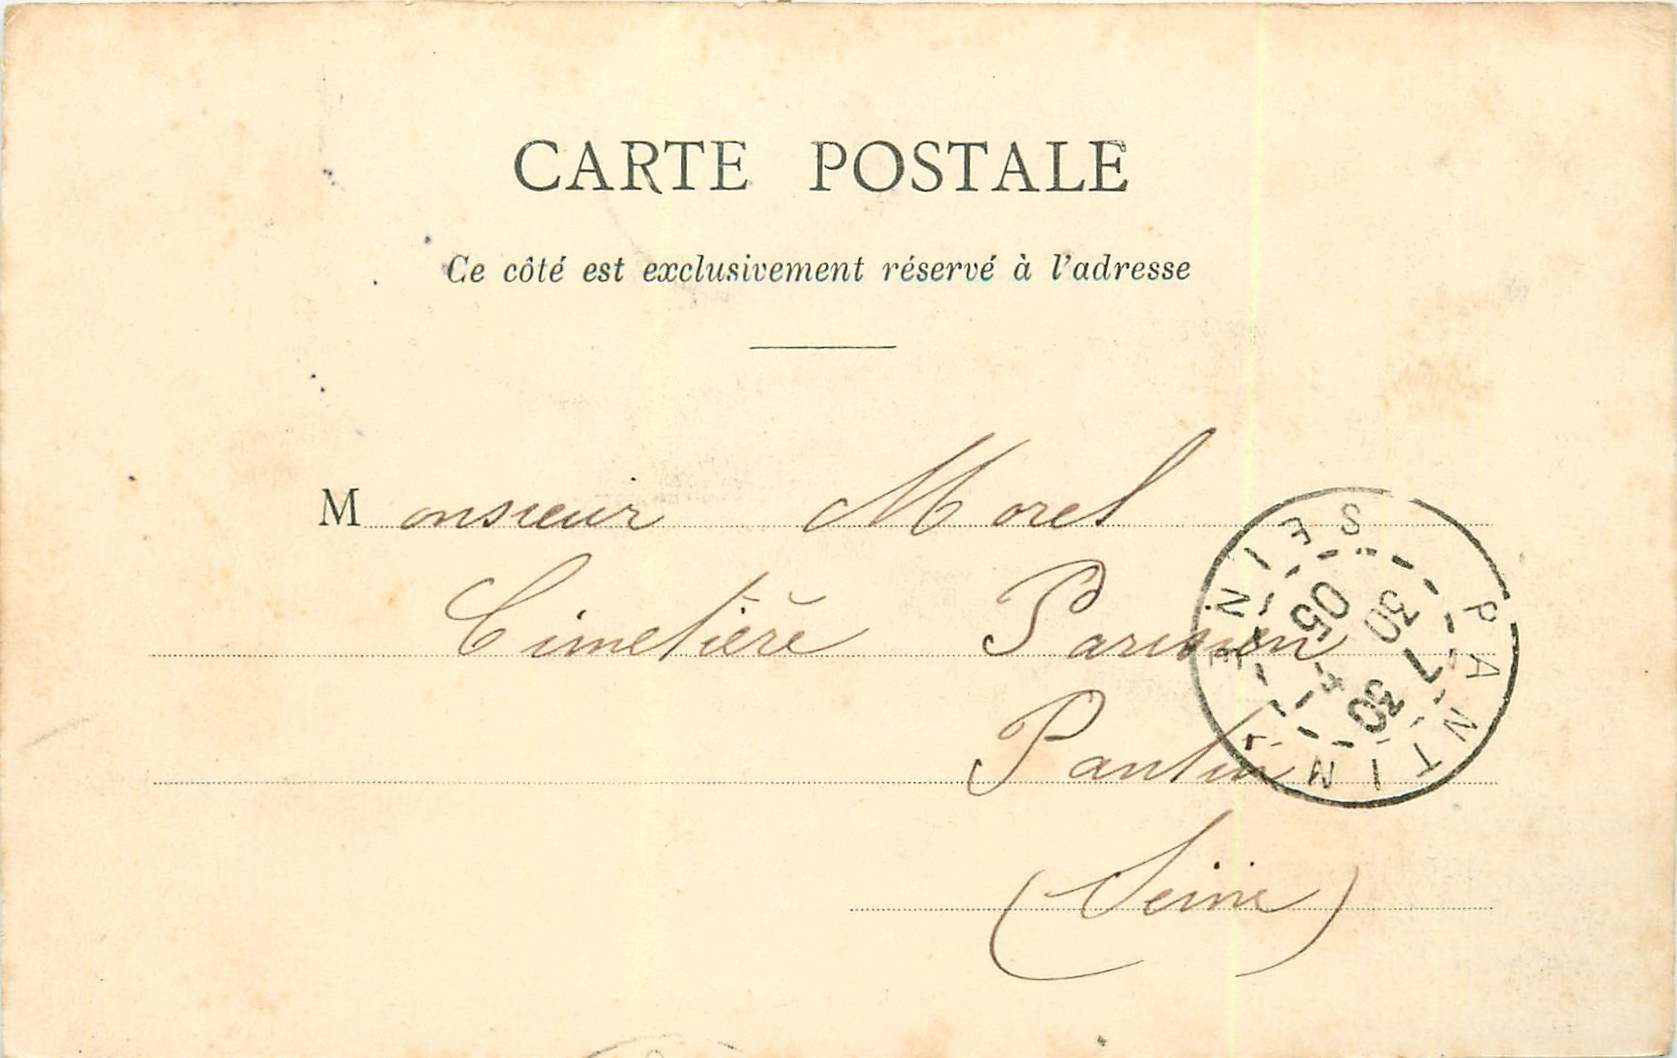 CARTE POSTALE
Ce côté est exclusivement réservé à l'adresse
Monsieur Morel
Cimetière Parisien
Pantin
(Seine)
PANTIN
SEINE
7 30
30
05